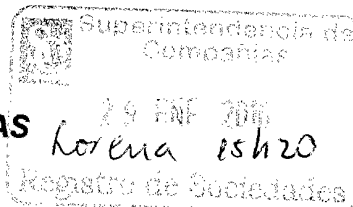 Superintendencia de
Compañías
29 ENE 2016
AS Lorena 15h20
Registro de Sociedades